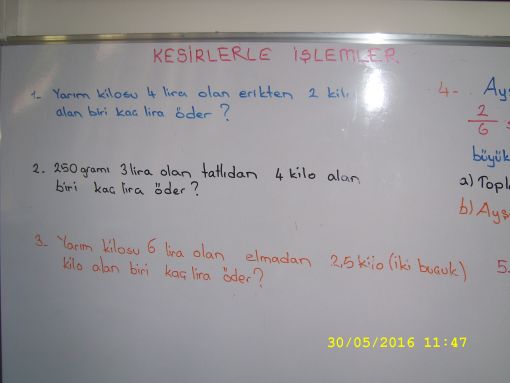 KESİRLERLE İŞLEMLER.
1- Yarım kilosu 4 lira olan erikten 2 kilo
alan biri kaç lira öder?
2. 250 gramı 3 lira olan tatlıdan 4 kilo alan
biri kaç lira öder?
3- Yarım kilosu 6 lira olan elmadan 2,5 kilo (iki buçuk)
kilo alan biri kaç lira öder?
4- Ayş
2
6
büyük
a) Topl
b) Ayş
5.
30/05/2016 11:47